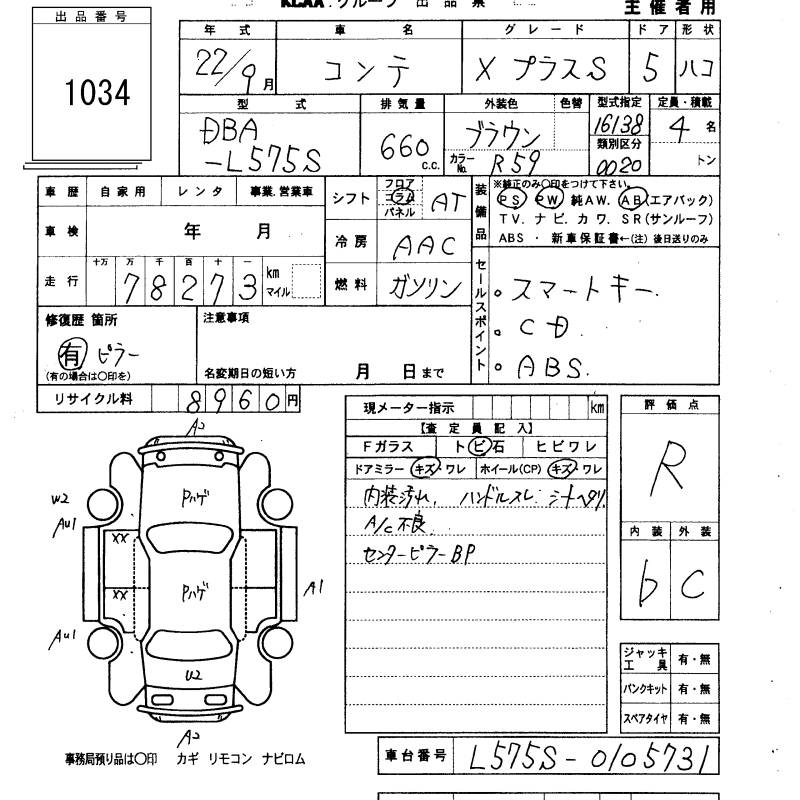 KCAA.グループ 出品票
主催者用
出品番号
1034
年式 車名 グレード ドア 形状
22/9月 コンテ X プラスS 5 ハコ
型式 排気量 外装色 色替 型式指定 定員・積載
DBA
-L575S
660 c.c.
ブラウン
カラーNo. R59
16138
類別区分
0020
4 名
トン
車歴 自家用 レンタ 事業.営業車
車検 年 月
走行 十万 万 千 百 十 一
78273 km マイル
シフト フロア コラム パネル AT
冷房 AAC
燃料 ガソリン
装備品
※純正のみ〇印をつけて下さい。
PS PW 純AW. AB(エアバック)
TV. ナビ. カワ. SR(サンルーフ)
ABS ・ 新車保証書←(注) 後日送りのみ
セールスポイント
。スマートキー.
。CD.
。ABS.
修復歴 箇所
有 ピラー
(有の場合は〇印を)
注意事項
名変期日の短い方 月 日まで
リサイクル料 8960円
現メーター指示 km
【査定員記入】
Fガラス トビ石 ヒビワレ
ドアミラー キズ・ワレ ホイール(CP) キズ・ワレ
内装汚れ, ハンドルスレ: シートヘタリ.
A/C不良.
センターピラーBP
評価点
R
内装 外装
b C
ジャッキ工具 有・無
パンクキット 有・無
スペアタイヤ 有・無
A2
W2
Pハゲ
AU1
XX
Pハゲ
A1
XX
AU1
U2
A2
事務局預り品は〇印 カギ リモコン ナビロム
車台番号 L575S-0105731